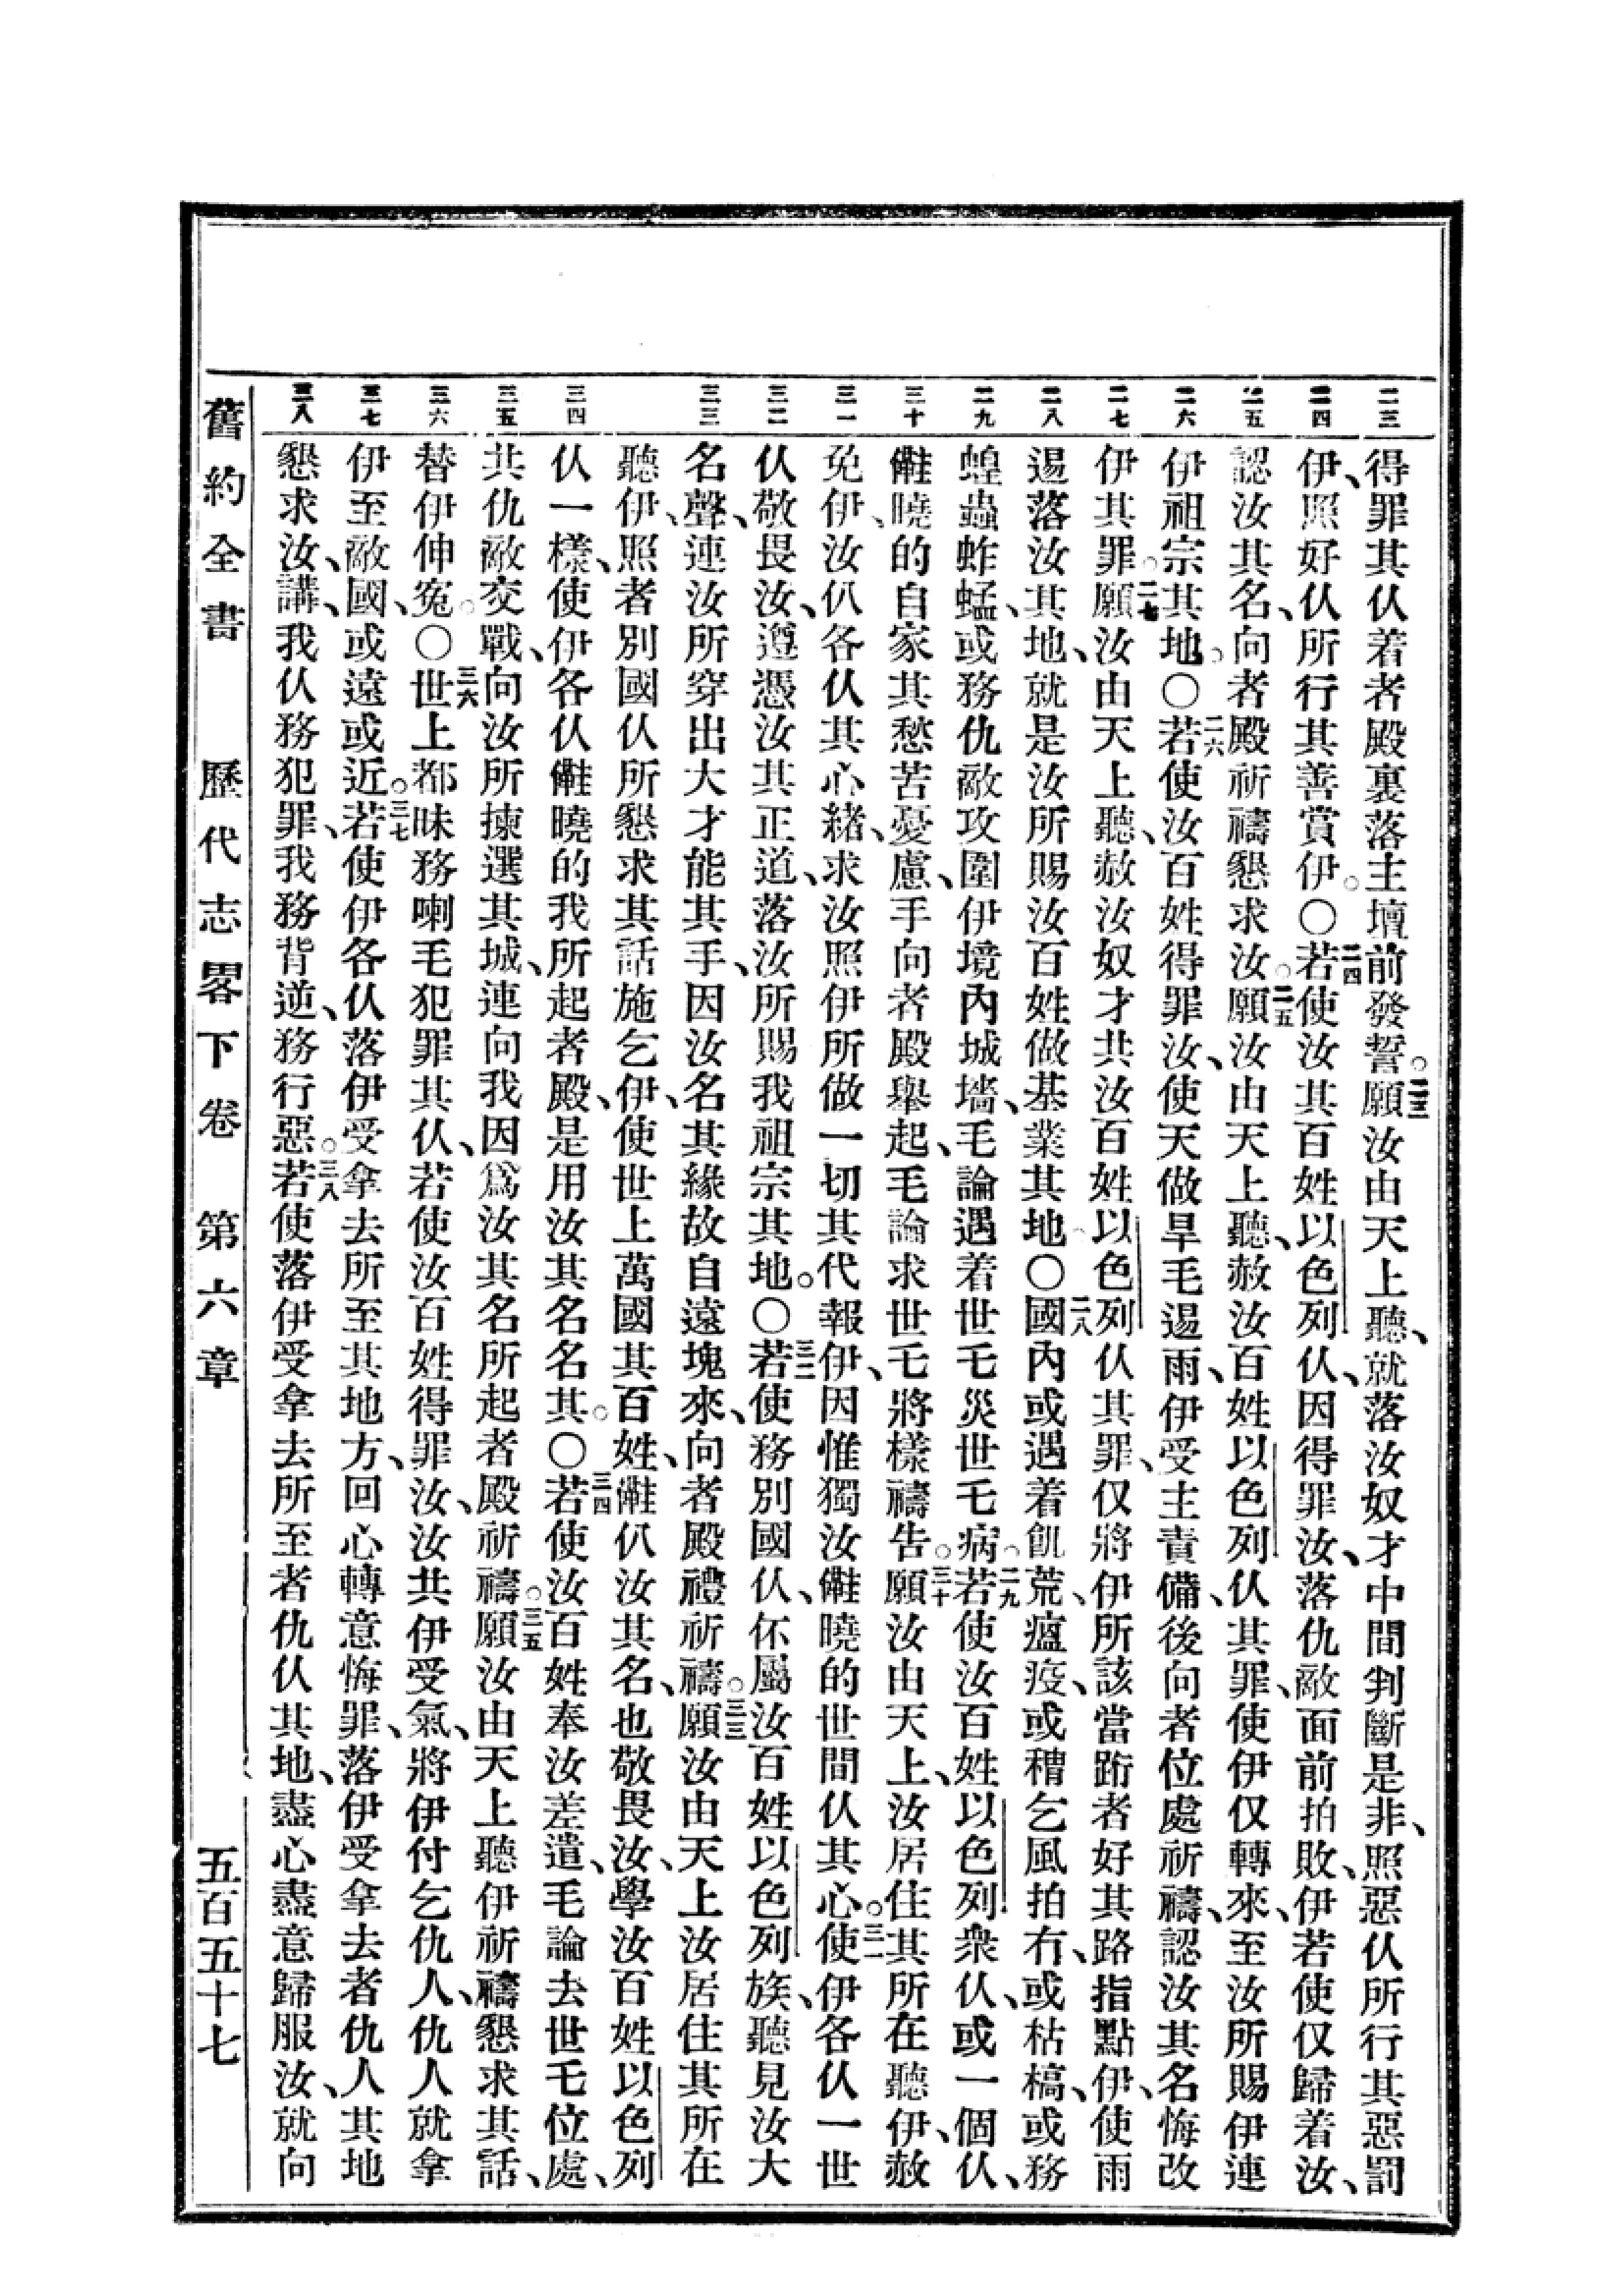 二三 二四 二五 二六 二七 二八 二九 三十 三一 三二 三三 三四 三五 三六 三七 三八
得罪其仈着者殿裏落主壇前發誓。二三願汝由天上聽、就落汝奴才中間判斷是非、照惡仈所行其惡罰
伊、照好仈所行其善賞伊。〇二四若使汝其百姓以色列仈、因得罪汝、落仇敵面前拍敗、伊若使仅歸着汝、
認汝其名、向者殿祈禱懇求汝。二五願汝由天上聽、赦汝百姓以色列仈其罪、使伊仅轉來、至汝所賜伊連
伊祖宗其地。〇二六若使汝百姓得罪汝、使天做旱毛逷雨、伊受主責備、後向者位處祈禱、認汝其名悔改
伊其罪。二七願汝由天上聽、赦汝奴才共汝百姓以色列仈其罪、仅將伊所該當跲者好其路指點伊、使雨
逷落汝其地、就是汝所賜汝百姓做基業其地。〇二八國內或遇着飢荒、瘟疫、或穧乞風拍冇、或枯槁、或務
蝗蟲蚱蜢、或務仇敵攻圍伊境內城墻、毛論遇着世乇災世乇病。二九若使汝百姓以色列衆仈、或一個仈、
曉的自家其愁苦、憂慮、手向者殿舉起、毛論求世乇將樣禱告。三十願汝由天上、汝居住其所在聽伊、赦
免伊、汝仈各仈其心緒、求汝照伊所做一切其代報伊、因惟獨汝曉的世間仈其心。三一使伊各仈一世
仈敬畏汝、遵憑汝其正道、落汝所賜我祖宗其地。〇三二若使務別國仈、伓屬汝百姓以色列族、聽見汝大
名聲、連汝所穿出大才能其手、因汝名其緣故自遠塊來、向者殿禮祈禱。三三願汝由天上汝居住其所在
聽伊、照者別國仈所懇求其話施乞伊、使世上萬國其百姓、仈汝其名、也敬畏汝、學汝百姓以色列
仈一樣、使伊各仈曉的我所起者殿、是用汝其名名其。〇三四若使汝百姓奉汝差遣、毛論去世乇位處、
共仇敵交戰、向汝所揀選其城、連向我因爲汝其名所起者殿祈禱。三五願汝由天上聽伊祈禱懇求其話、
替伊伸冤。〇三六世上都昧務喇毛犯罪其仈、若使汝百姓得罪汝、汝共伊受氣、將伊付乞仇人、仇人就拿
伊至敵國、或遠或近。三七若使伊各仈落伊受拿去所至其地方、回心轉意悔罪、落伊受拿去者仇人其地
懇求汝、講、我仈務犯罪、我務背逆、務行惡。三八若使落伊受拿去所至者仇仈其地、盡心盡意歸服汝、就向
舊約全書 歷代志畧下卷 第六章 五百五十七